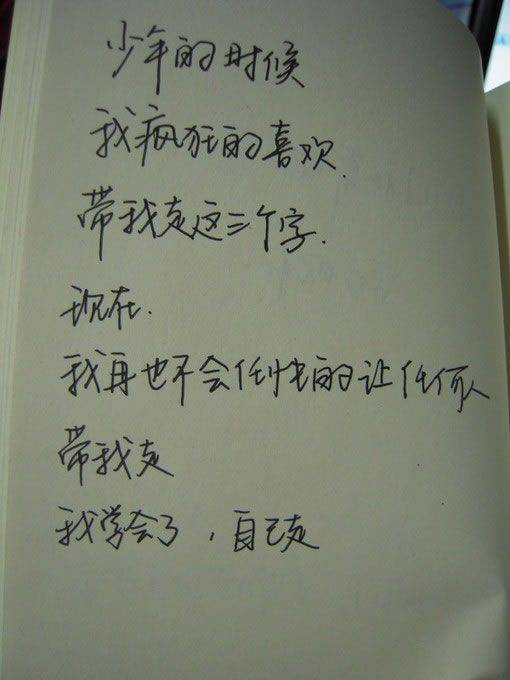 少年的时候
我疯狂的喜欢.
带我走这三个字.
现在.
我再也不会任性的让任何人
带我走
我学会了，自己走